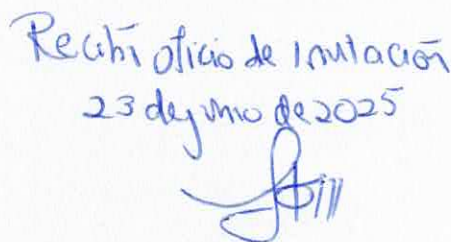 Recibí oficio de Invitación
23 de junio de 2025